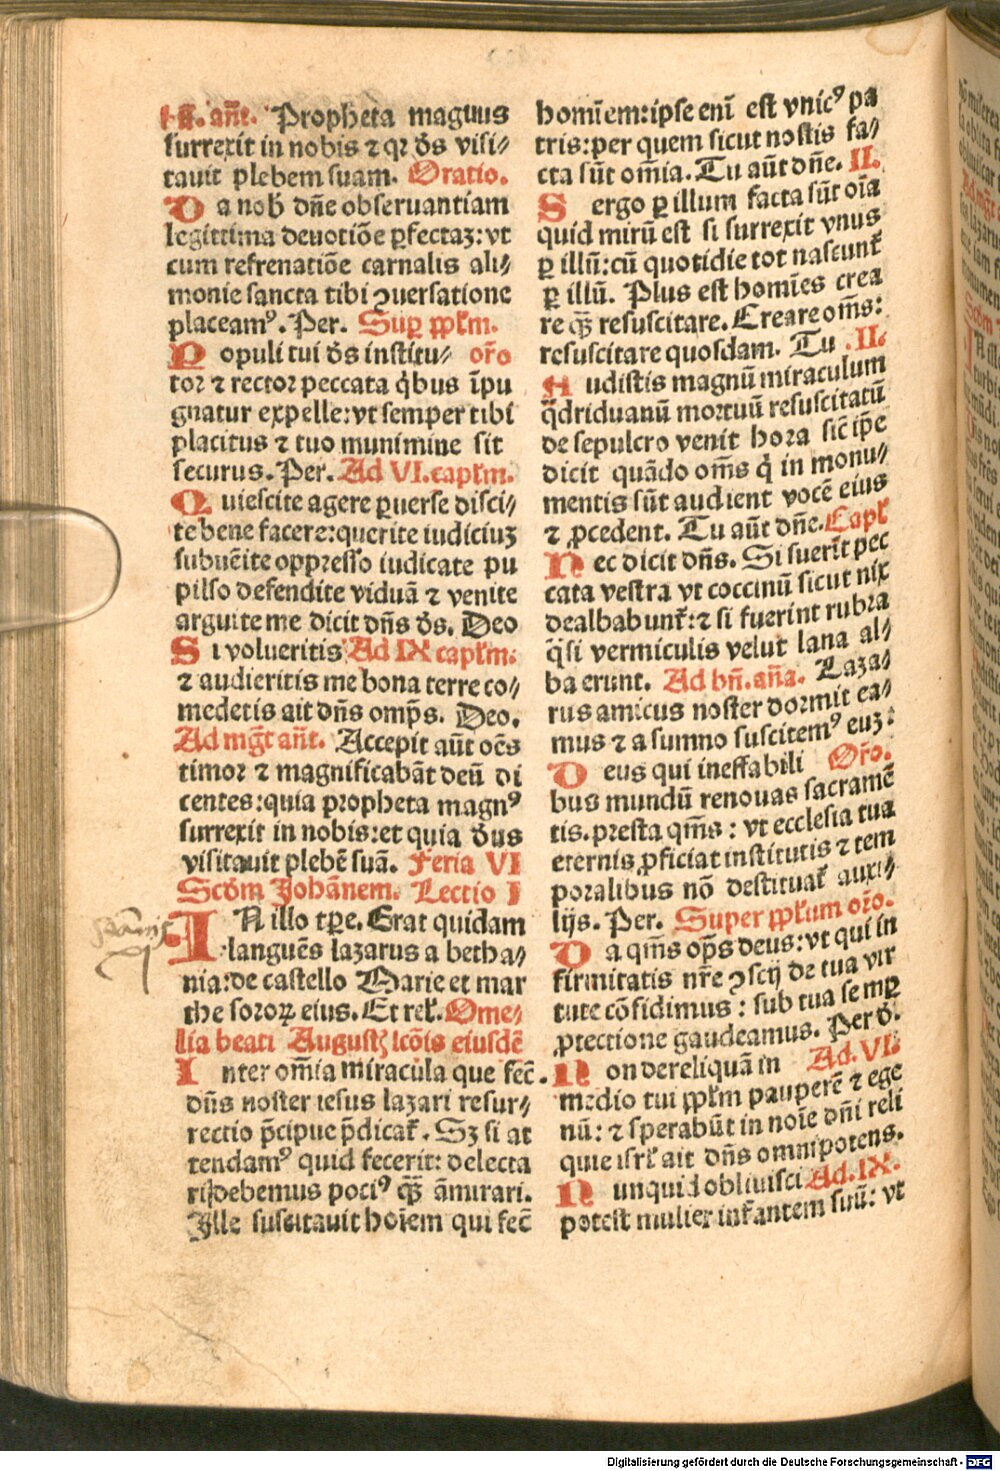 añt. Propheta magnus
surrexit in nobis ⁊ qꝛ ds̄ visi⸗
tauit plebem suam. Oratio.
Da nob̄ dñe obseruantiam
legittima deuotiōe ꝑfectaꝫ: vt
cum refrenatiōe carnalis ali⸗
monie sancta tibi ꝯuersatione
placeamꝰ. Per. Suꝑ pp̄lm.
Populi tui ds̄ institu⸗ or̄o
toꝛ ⁊ rector peccata q̄bus īpu
gnatur expelle: vt semper tibi
placitus ⁊ tuo munimine sit
securus. Per. Ad VI. capl̄m.
Quiescite agere ꝑuerse disci⸗
te bene facere: querite iudiciuꝫ
subuēite oppresso iudicate pu
pillo defendite viduā ⁊ venite
arguite me dicit dñs ds̄. Deo
Si volueritis Ad IX capl̄m.
⁊ audieritis me bona terre co⸗
medetis ait dñs omp̄s. Deo.
Ad mḡt añt. Accepit aūt oēs
timoꝛ ⁊ magnificabāt deū di
centes: quia propheta magnꝰ
surrexit in nobis: et quia ds̄
visitauit plebē suā. Feria VI
Scd̄m Johānem. Lectio I
IN illo tꝑe. Erat quidam
languēs lazarus a betha⸗
nia: de castello Marie et mar
the soroꝝ eius. Et rel̄. Ome⸗
lia beati Augustꝫ lc̄ōis eiusdē
Inter om̄ia miracula que fec̄.
dñs noster iesus lazari resur⸗
rectio p̄cipue p̄dicat̄. Sꝫ si at
tendamꝰ quid fecerit: delecta
ri debemus potiꝰ qꝫ̄ āmirari.
Ille suscitauit hoīem qui fec̄
homīem: ipse enī est vnicꝰ pa
tris: per quem sicut nostis fa⸗
cta sūt om̄ia. Tu aūt dñe. II.
Si ergo ꝑ illum facta sūt oīa
quid mirū est si surrexit vnus
ꝑ illū: cū quotidie tot nascunt̄
ꝑ illū. Plus est homīes crea
re qꝫ̄ resuscitare. Creare om̄s:
resuscitare quosdam. Tu .II.
Audistis magnū miraculum
q̄driduanū mortuū resuscitatū
de sepulcro venit hora sic̄ ip̄e
dicit quādo om̄s q̄ in monu⸗
mentis sūt audient vocē eius
⁊ ꝓcedent. Tu aūt dñe. Capl̄
Nec dicit dñs. Si fuerīt pec
cata vestra vt coccinū sicut nix
dealbabunt̄: ⁊ si fuerint rubra
q̄si vermiculis velut lana al⸗
ba erunt. Ad bñ. aña. Laza⸗
rus amicus noster dormit ea⸗
mus ⁊ a sumno suscitemꝰ euꝫ:
Deus qui ineffabili Or̄o.
bus mundū renouas sacramē
tis. presta qm̄s: vt ecclesia tua
eternis ꝓficiat institutis ⁊ tem
poralibus nō destituat̄ auxi⸗
lijs. Per. Super pp̄lum or̄o.
Da qm̄s op̄s deus: vt qui in
firmitatis nr̄e ꝯscij de tua vir
tute cōfidimus: sub tua semꝑ
ꝓtectione gaudeamus. Per d̄.
Non dereliquā in Ad. VI.
medio tui pp̄lm pauperē ⁊ ege
nū: ⁊ sperabūt in noīe dñi reli
quie isrl̄ ait dñs omnipotens.
Nunquid obliuisci Ad. IX.
potest mulier infantem suū: vt